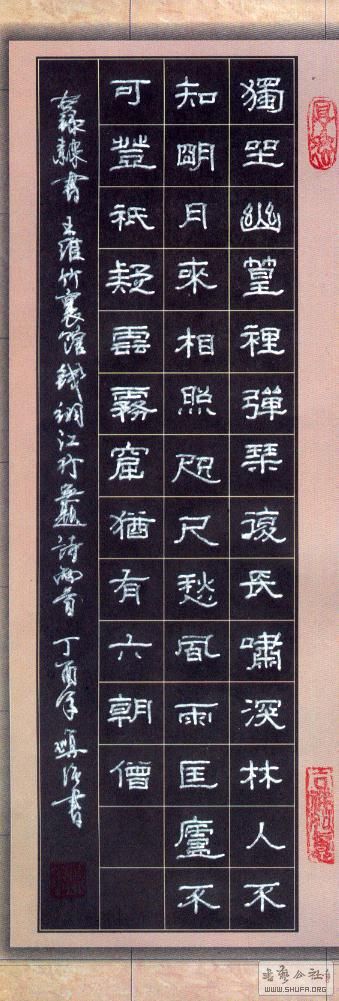 獨坐幽篁裡彈琴復長嘯深林人不
知明月來相照咫尺愁風雨匡廬不
可登祇疑雲霧窟猶有六朝僧
錄隸書 王維竹裏館 錢珝江行無題詩兩首 丁酉年 書
WWW.SHUFA.ORG